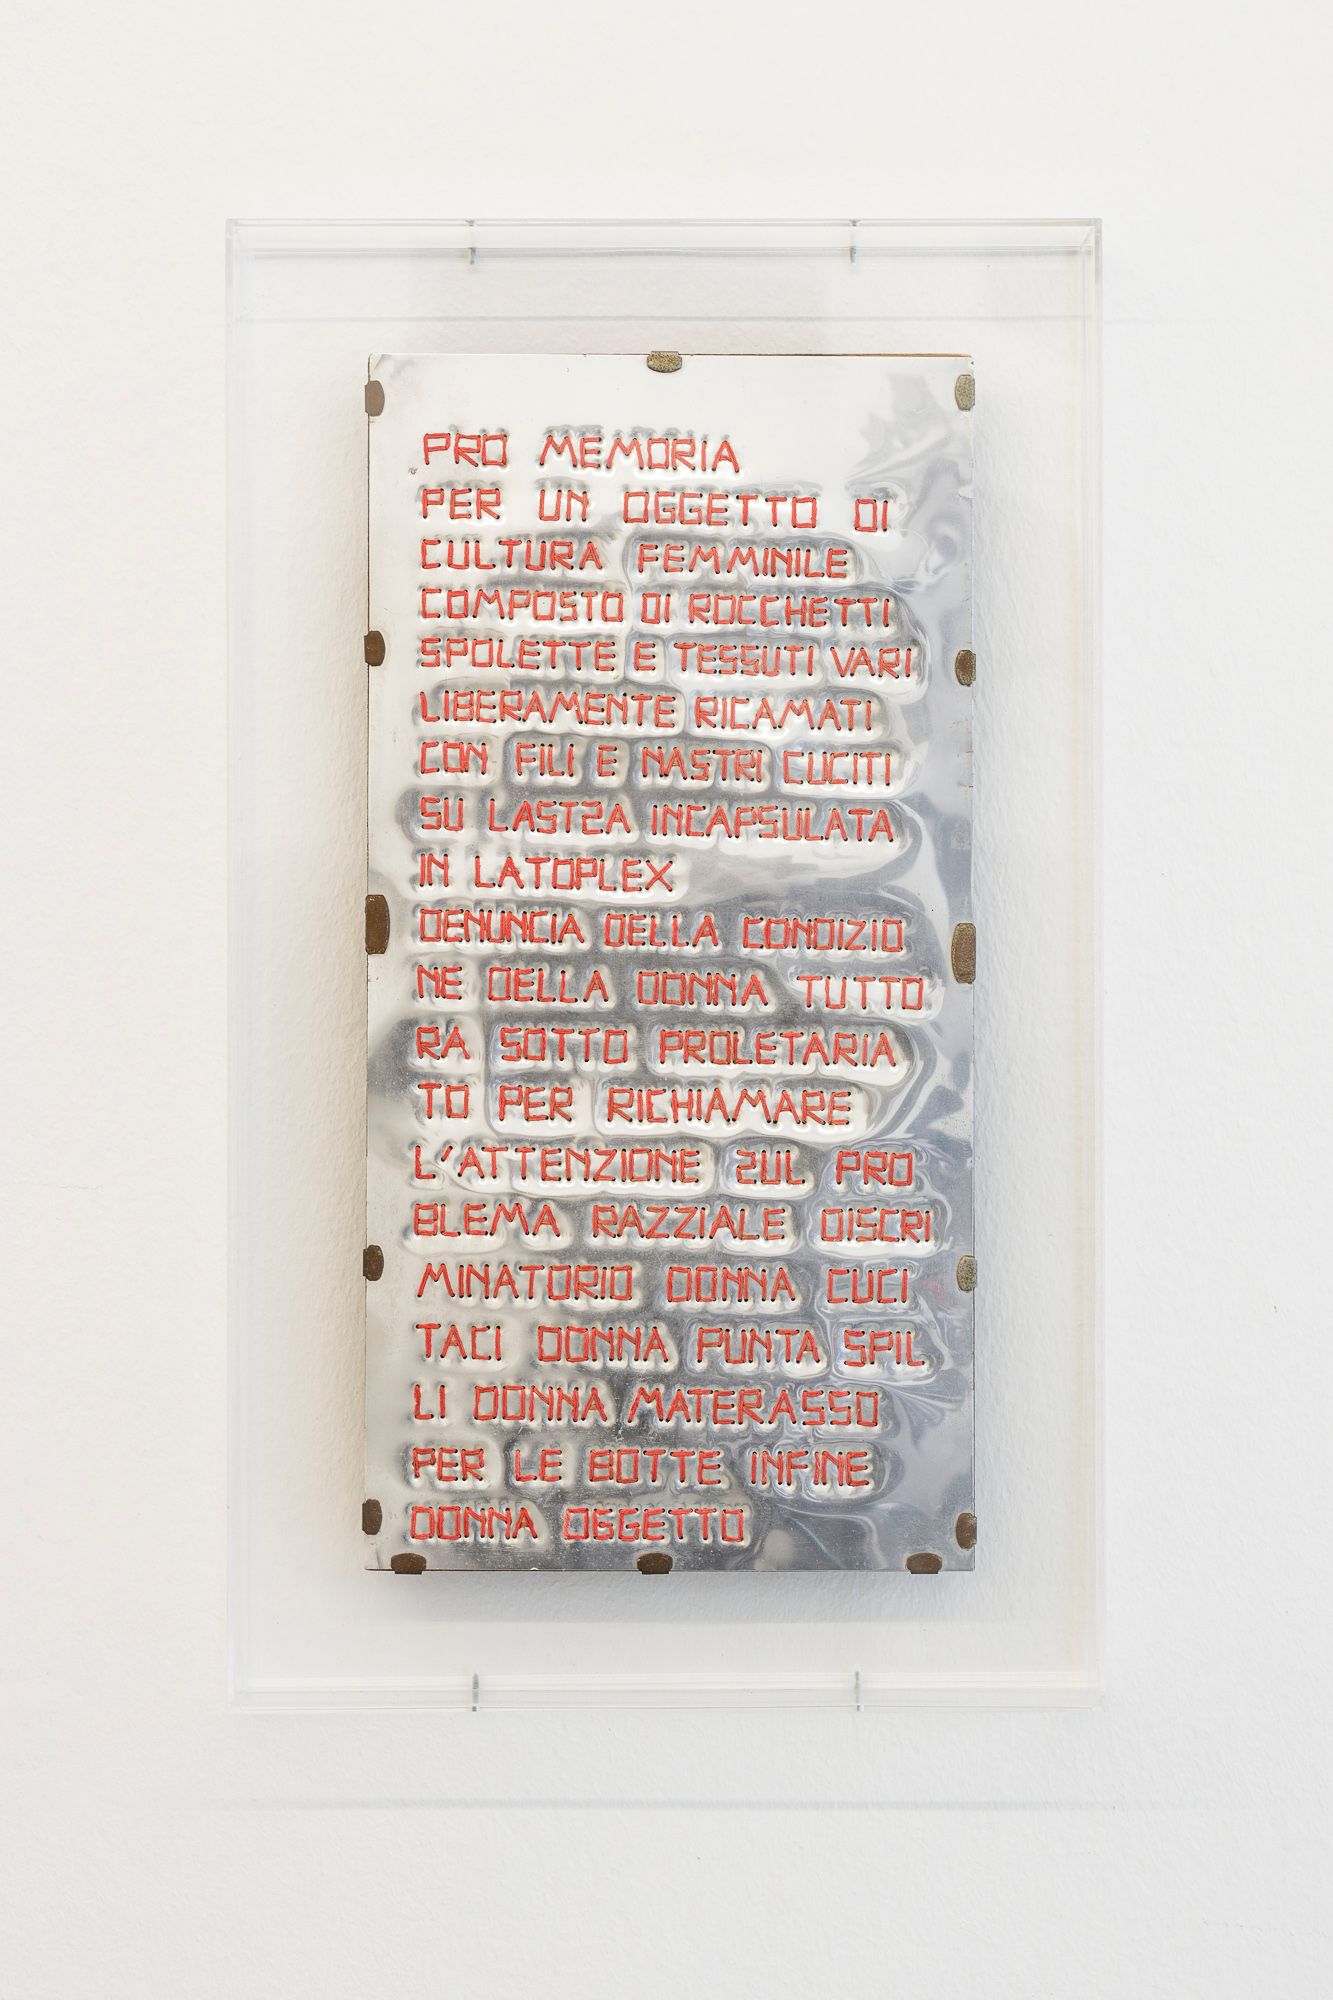 PRO MEMORIA
PER UN OGGETTO DI
CULTURA FEMMINILE
COMPOSTO DI ROCCHETTI
SPOLETTE E TESSUTI VARI
LIBERAMENTE RICAMATI
CON FILI E NASTRI CUCITI
SU LASTZA INCAPSULATA
IN LATOPLEX
DENUNCIA DELLA CONDIZIO
NE DELLA DONNA TUTTO
RA SOTTO PROLETARIA
TO PER RICHIAMARE
L'ATTENZIONE SUL PRO
BLEMA RAZZIALE DISCRI
MINATORIO DONNA CUCI
TACI DONNA PUNTA SPIL
LI DONNA MATERASSO
PER LE BOTTE INFINE
DONNA OGGETTO